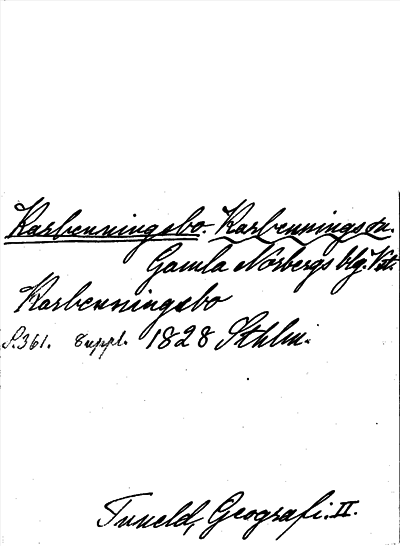 Karbenningsbo. Karbennings sn.
Gamla Norbergs blg. Vstm.
Karbenningsbo
S. 361. Suppl. 1828 Sthlm.
Tuneld, Geografi. II.